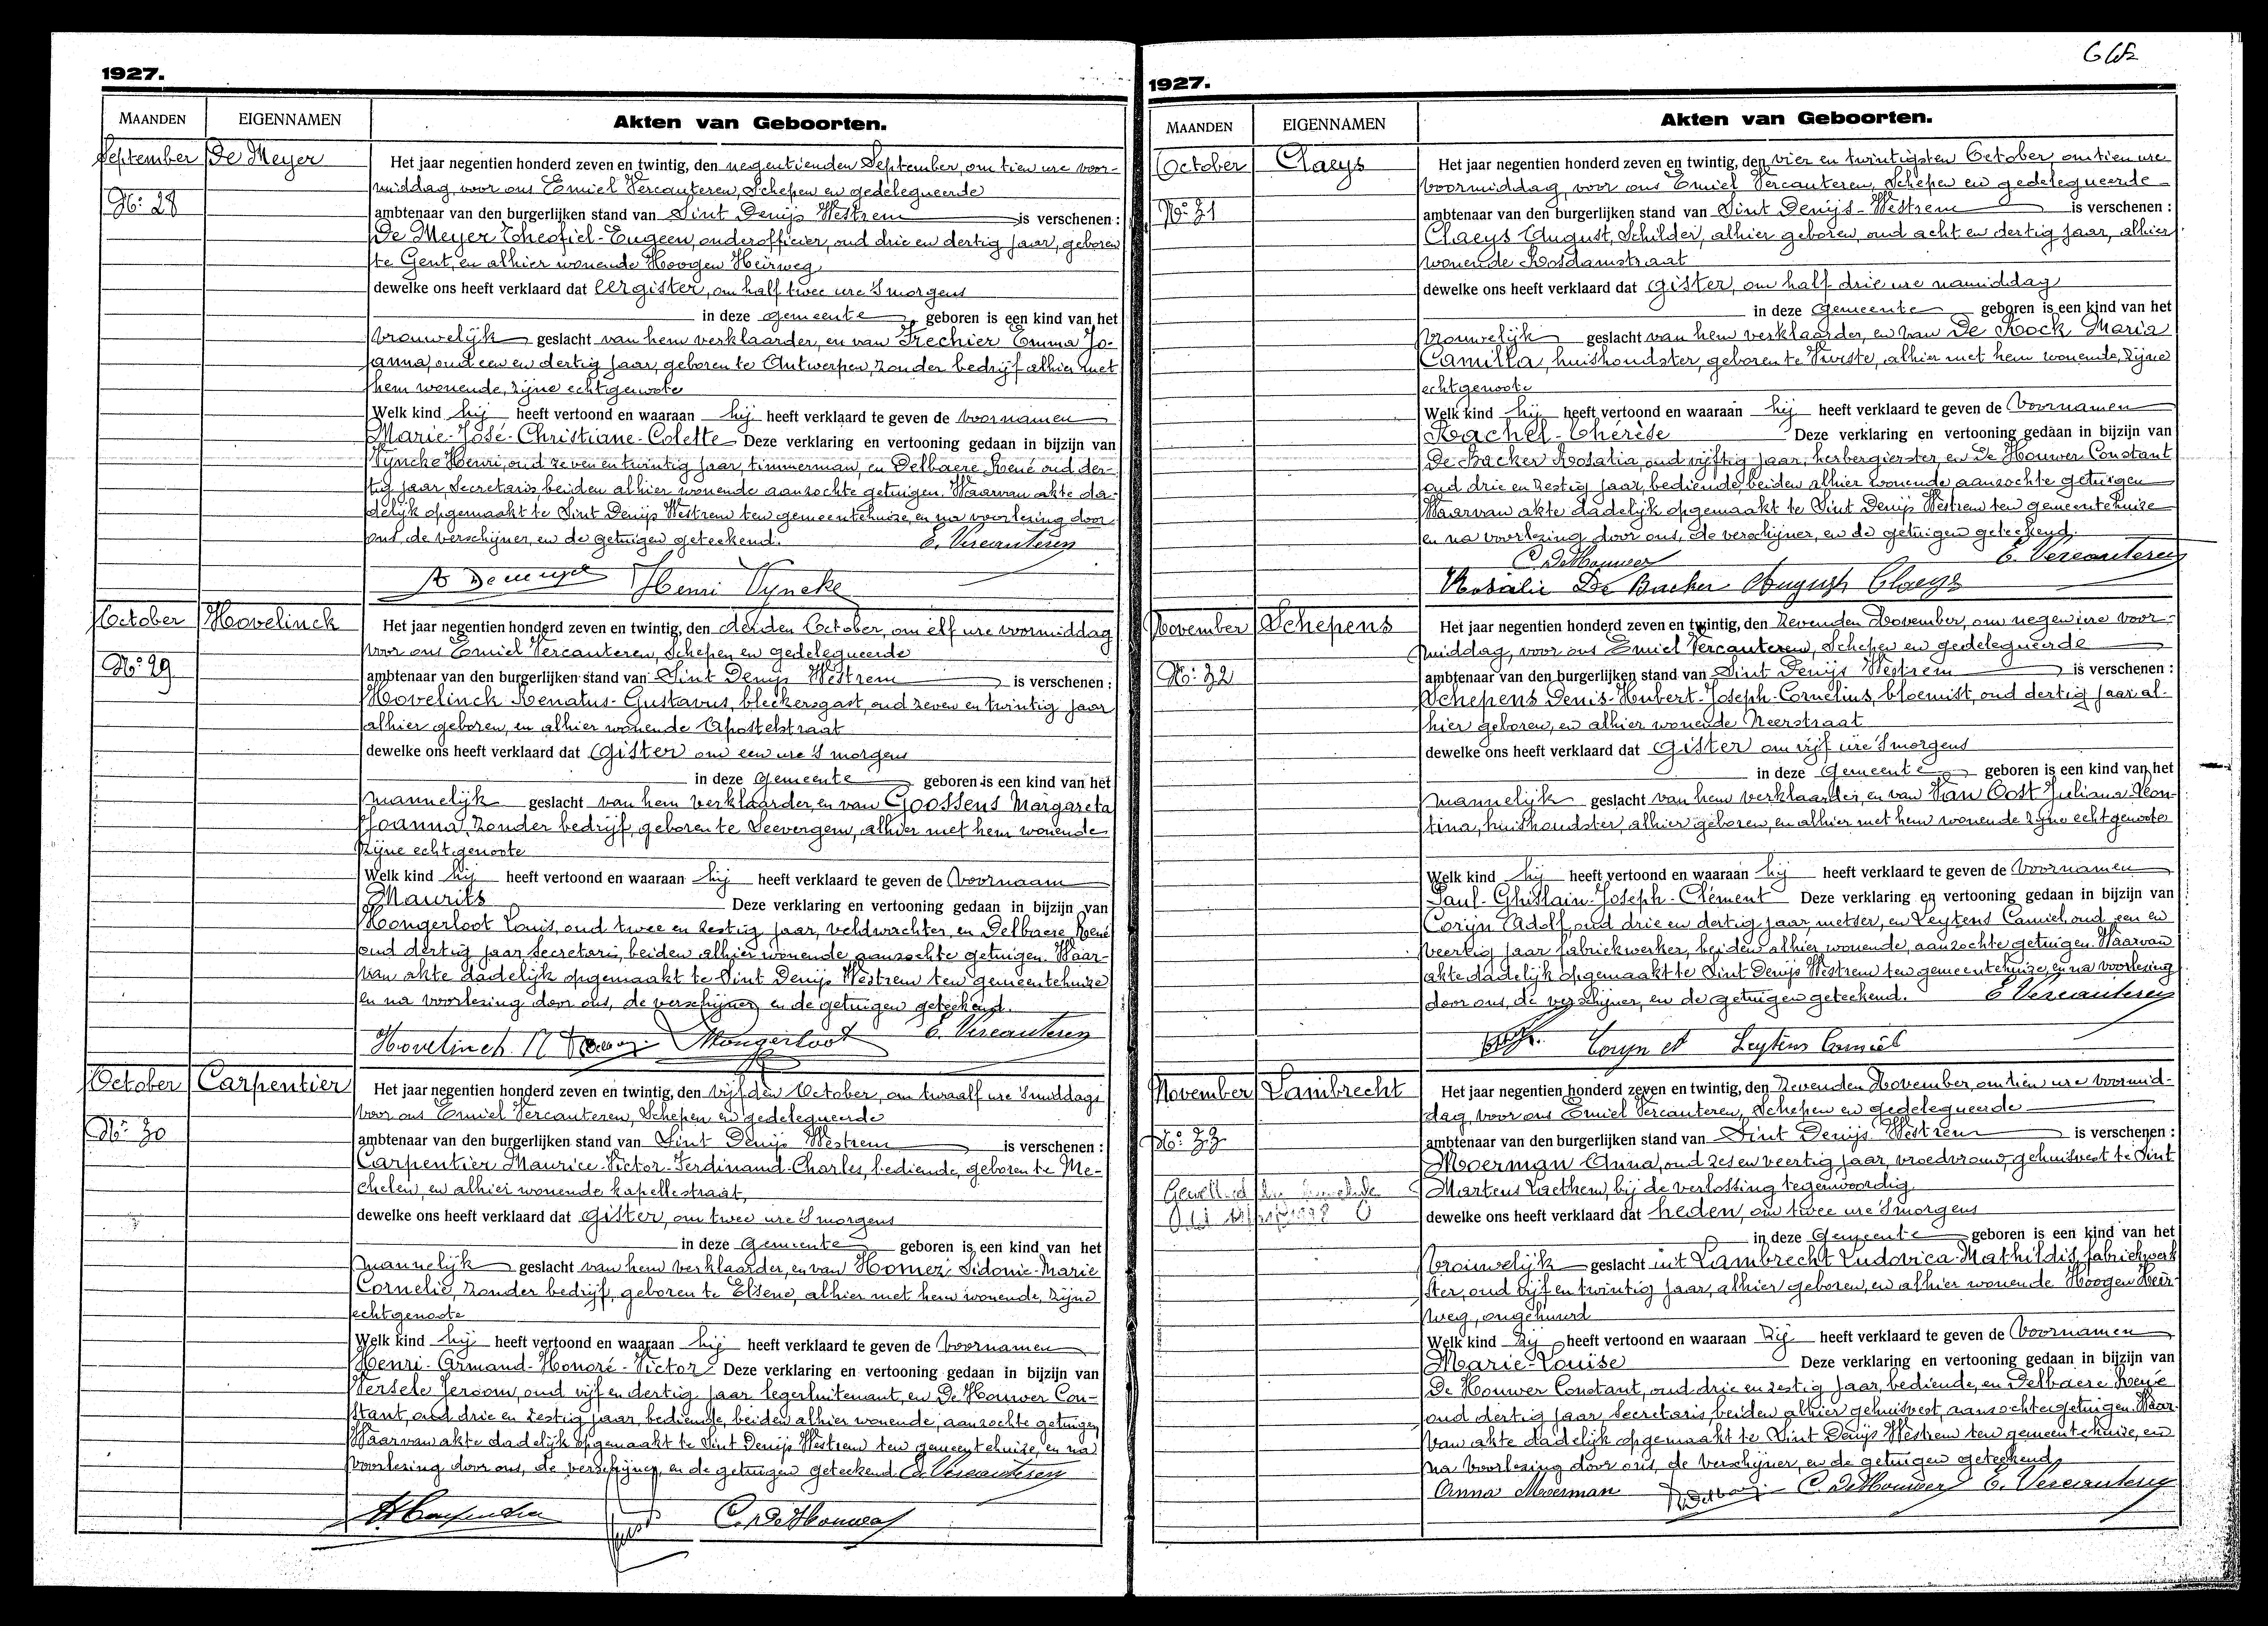 1927.
MAANDEN EIGENNAMEN Akten van Geboorten.
September De Meyer Het jaar negentien honderd zeven en twintig, den negentienden September, om tien ure voor-
middag, voor ons Emiel Vercauteren, Schepen en gedelegueerde
No: 28 ambtenaar van den burgerlijken stand van Sint Denijs Westrem is verschenen :
De Meyer Theofiel-Eugeen, onderofficier, oud drie en dertig jaar, geboren
te Gent, en alhier wonende Hoogen Heirweg,
dewelke ons heeft verklaard dat eergister, om half twee ure 's morgens
in deze gemeente, geboren is een kind van het
vrouwelijk geslacht van hem verklaarder, en van Frechier Emma Jo-
anna, oud een en dertig jaar, geboren te Antwerpen, zonder bedrijf alhier met
hem wonende, zijne echtgenoote
Welk kind hij heeft vertoond en waaraan hij heeft verklaard te geven de voornamen
Marie-José-Christiane-Colette Deze verklaring en vertooning gedaan in bijzijn van
Vyncke Henri, oud zeven en twintig jaar, timmerman, en Delbaere René oud der-
tig jaar, Secretaris, beiden alhier wonende aanzochte getuigen. Waarvan akte da-
delijk opgemaakt te Sint Denijs Westrem ten gemeentehuize, en na voorlezing door
ons, de verschijner, en de getuigen geteekend. E. Vercauteren
Henri Vyncke
October Hovelinck Het jaar negentien honderd zeven en twintig, den derden October, om elf ure voormiddag
voor ons Emiel Vercauteren, Schepen en gedelegueerde
No: 29 ambtenaar van den burgerlijken stand van Sint Denijs Westrem is verschenen :
Hovelinck Renatus-Gustavus, bleekersgast, oud zeven en twintig jaar
alhier geboren, en alhier wonende Apostelstraat
dewelke ons heeft verklaard dat gister om een ure 's morgens
in deze gemeente geboren is een kind van het
mannelijk geslacht van hem verklaarder, en van Goossens Margareta
Joanna, zonder bedrijf, geboren te Seevergem, alhier met hem wonende
zijne echtgenoote
Welk kind hij heeft vertoond en waaraan hij heeft verklaard te geven de voornaam
Maurits Deze verklaring en vertooning gedaan in bijzijn van
Hongerloot Louis, oud twee en zestig jaar, veldwachter, en Delbaere René
oud dertig jaar Secretaris, beiden alhier wonende aanzochte getuigen. Waar-
van akte dadelijk opgemaakt te Sint Denijs Westrem ten gemeentehuize
en na voorlezing door ons, de verschijner, en de getuigen geteekend.
Hovelinck R Hongerloot E. Vercauteren
October Carpentier Het jaar negentien honderd zeven en twintig, den vijfden October, om twaalf ure 's middags
voor ons Emiel Vercauteren, Schepen en gedelegueerde
No: 30 ambtenaar van den burgerlijken stand van Sint Denijs Westrem is verschenen :
Carpentier Maurice-Victor-Ferdinand-Charles, bediende, geboren te Me-
chelen, en alhier wonende kapellestraat,
dewelke ons heeft verklaard dat gister, om twee ure 's morgens
in deze gemeente geboren is een kind van het
mannelijk geslacht van hem verklaarder, en van Homez Sidonie-Marie
Cornelie, zonder bedrijf, geboren te Elsene, alhier met hem wonende, zijne
echtgenoote
Welk kind hij heeft vertoond en waaraan hij heeft verklaard te geven de voornamen
Henri-Armand-Honoré-Victor Deze verklaring en vertooning gedaan in bijzijn van
Versele Jeroom, oud vijf en dertig jaar legerluitenant, en De Houwer Con-
stant, oud drie en zestig jaar, bediende, beiden alhier wonende, aanzochte getuigen
Waarvan akte dadelijk opgemaakt te Sint Denijs Westrem ten gemeentehuize, en na
voorlezing door ons, de verschijner, en de getuigen geteekend. E. Vercauteren
C. De Houwer
1927.
MAANDEN EIGENNAMEN Akten van Geboorten.
October Claeys Het jaar negentien honderd zeven en twintig, den vier en twintigsten October, om tien ure
voormiddag, voor ons Emiel Vercauteren, Schepen en gedelegueerde
No: 31 ambtenaar van den burgerlijken stand van Sint Denijs-Westrem is verschenen :
Claeys August, Schilder, alhier geboren, oud acht en dertig jaar, alhier
wonende Rosdamstraat
dewelke ons heeft verklaard dat gister, om half drie ure namiddag
in deze gemeente geboren is een kind van het
vrouwelijk geslacht van hem verklaarder, en van De Kock Maria
Camilla, huishoudster, geboren te Vurste, alhier met hem wonende, zijne
echtgenoote
Welk kind hij heeft vertoond en waaraan hij heeft verklaard te geven de voornamen
Rachel-Thérèse Deze verklaring en vertooning gedaan in bijzijn van
De Backer Rosalia, oud vijftig jaar, herbergierster, en De Houwer Constant
oud drie en zestig jaar, bediende, beiden alhier wonende, aanzochte getuigen
Waarvan akte dadelijk opgemaakt te Sint Denijs Westrem ten gemeentehuize
en na voorlezing door ons, de verschijner, en de getuigen geteekend.
C. De Houwer E. Vercauteren
Rosalie De Backer August Claeys
November Schepens Het jaar negentien honderd zeven en twintig, den zevenden November, om negen ure voor-
middag, voor ons Emiel Vercauteren, Schepen en gedelegueerde
No: 32 ambtenaar van den burgerlijken stand van Sint Denijs Westrem is verschenen :
Schepens Denis-Hubert-Joseph-Cornelius, bloemist, oud dertig jaar al-
hier geboren, en alhier wonende Neerstraat
dewelke ons heeft verklaard dat gister om vijf ure 's morgens
in deze gemeente geboren is een kind van het
mannelijk geslacht van hem verklaarder, en van Van Oost Juliana-Leon-
tina, huishoudster, alhier geboren, en alhier met hem wonende zijne echtgenoote
Welk kind hij heeft vertoond en waaraan hij heeft verklaard te geven de voornamen
Paul-Ghislain-Joseph-Clément Deze verklaring en vertooning gedaan in bijzijn van
Coryn Adolf, oud drie en dertig jaar, metser, en Leytens Camiel, oud een en
veertig jaar fabriekwerker, beiden alhier wonende, aanzochte getuigen. Waarvan
akte dadelijk opgemaakt te Sint Denijs Westrem ten gemeentehuize, en na voorlezing
door ons, de verschijner, en de getuigen geteekend. E Vercauteren
Coryn Leytens Camiel
November Lambrecht Het jaar negentien honderd zeven en twintig, den zevenden November, om tien ure voormid-
dag, voor ons Emiel Vercauteren, Schepen en gedelegueerde
No: 33 ambtenaar van den burgerlijken stand van Sint Denijs Westrem is verschenen :
Moerman Anna, oud zes en veertig jaar, vroedvrouw, gehuisvest te Sint
Martens Laethem, bij de verlossing tegenwoordig
dewelke ons heeft verklaard dat heden, om twee ure 's morgens
in deze gemeente geboren is een kind van het
vrouwelijk geslacht uit Lambrecht Ludovica-Mathildis, fabriekwerk
ster, oud vijf en twintig jaar, alhier geboren, en alhier wonende Hoogen Heir-
weg, ongehuwd
Welk kind zij heeft vertoond en waaraan zij heeft verklaard te geven de voornamen
Marie-Louise Deze verklaring en vertooning gedaan in bijzijn van
De Houwer Constant, oud drie en zestig jaar, bediende, en Delbaere René
oud dertig jaar Secretaris, beiden alhier gehuisvest, aanzochte getuigen. Waar-
van akte dadelijk opgemaakt te Sint Denijs Westrem ten gemeentehuize, en
na voorlezing door ons, de verschijner, en de getuigen geteekend,
Anna Moerman C De Houwer E. Vercauteren